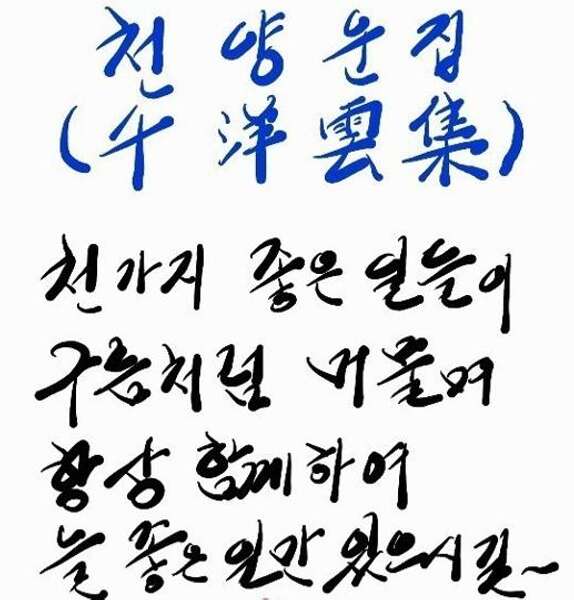 천 양 운 집
(千 洋 雲 集)
천가지 좋은 일들이
구름처럼 머물며
항상 함께하여
늘 좋은 일만 있으시길~